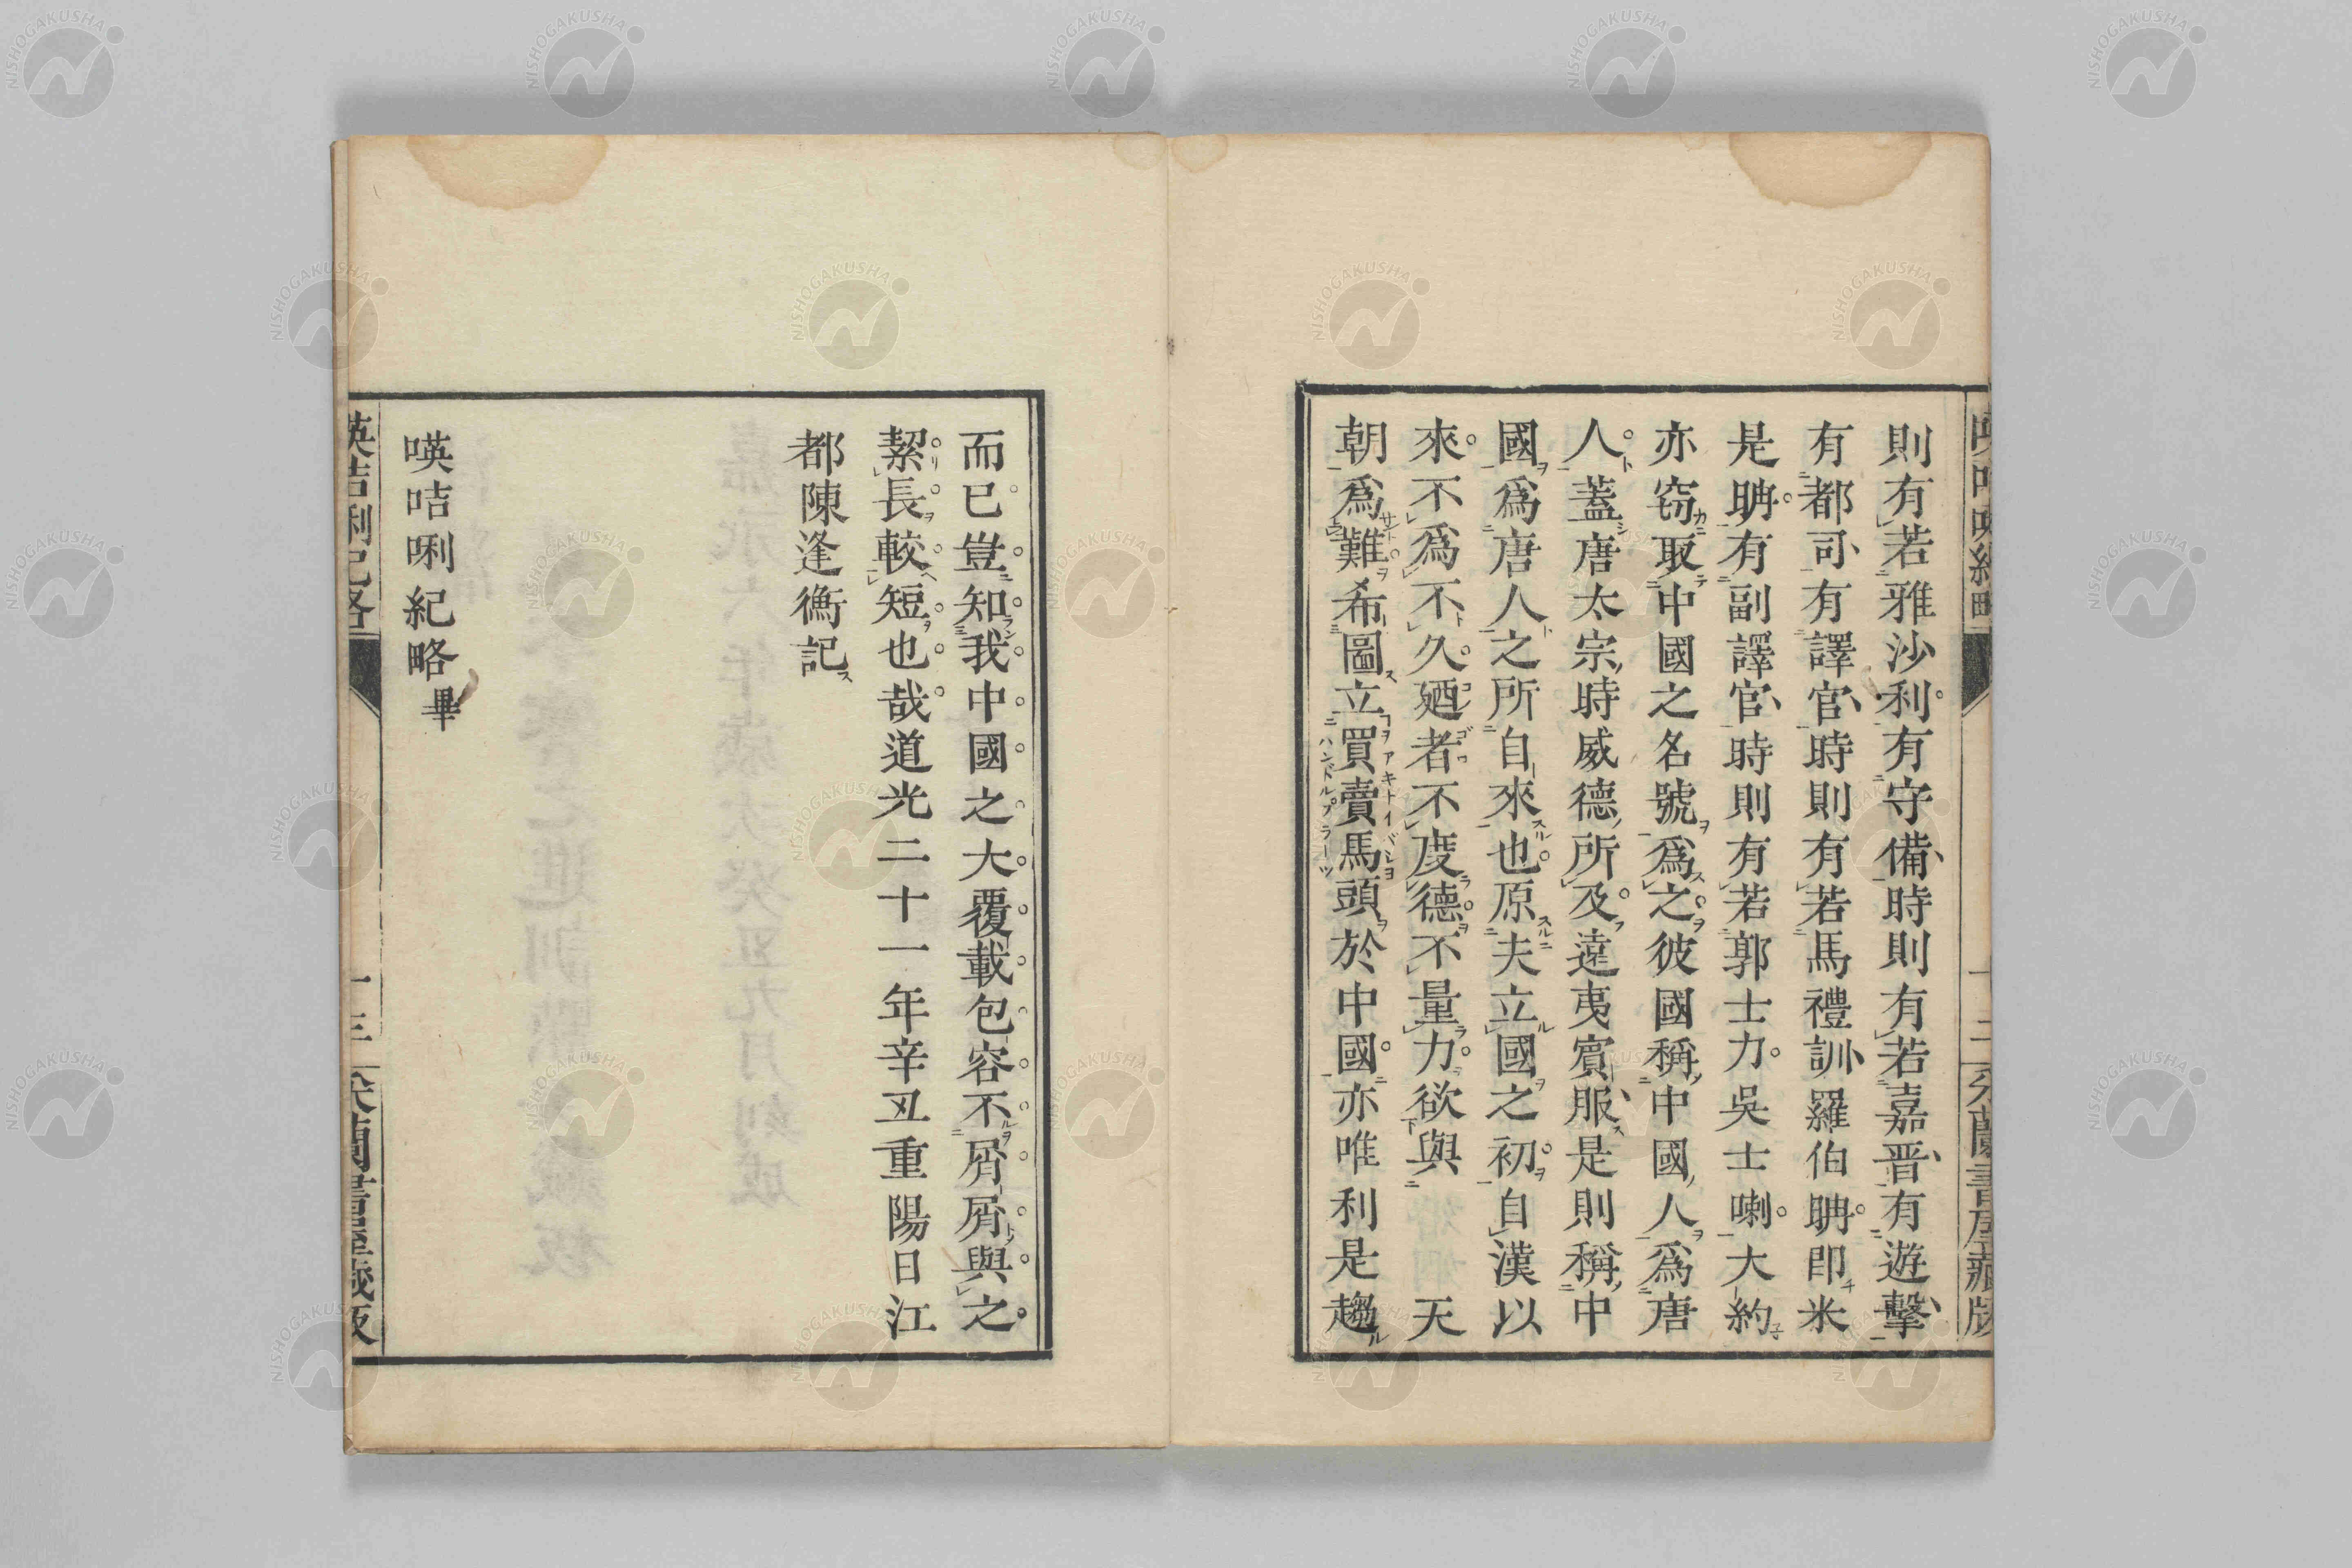 則有若雅沙利有守備時則有若嘉晋有遊擊
有都司有譯官時則有若馬禮訓羅伯聃即米
是聃有副譯官時則有若郭士力吳士喇大約
亦窃取中國之名號爲之彼國稱中國人爲唐
人蓋唐太宗時威德所及遠夷賓服是則稱中
國爲唐人之所自來也原夫立國之初自漢以
來不爲不久廼者不度德不量力欲與 天
朝爲難希圖立買賣馬頭於中國亦唯利是趨
而已豈知我中國之大覆載包容不屑屑與之
絜長較短也哉道光二十一年辛丑重陽日江
都陳逢衡記
嘆咭唎紀略畢
NISHOGAKUSHA